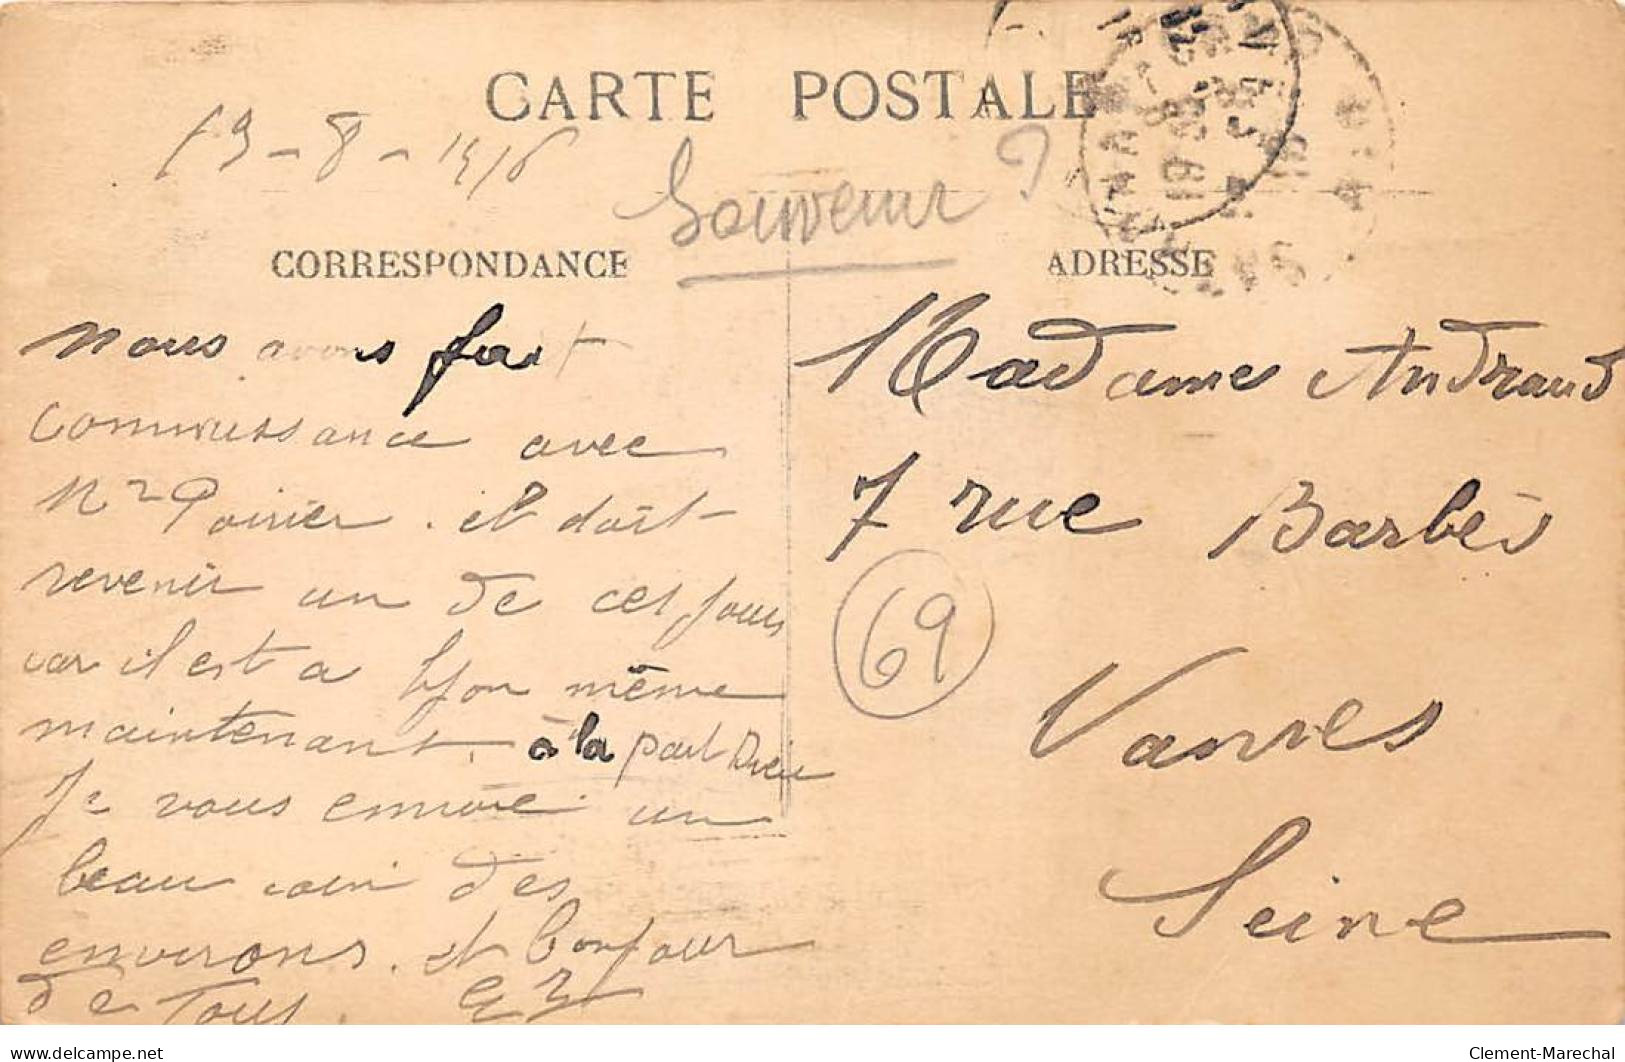 CARTE POSTALE
19-8-1916
Souvenir
CORRESPONDANCE
ADRESSE
Nous avons fait
connaissance avec
Mr Poirier. il doit
revenir un de ces jours
car il est a lyon même
maintenant. à la part Dieu
Je vous envoie un
beau coin des
environs. et bonjour
de tous.
Madame Andraud
7 rue Barbès
69
Vanves
Seine
delcampe.net
Clement-Marechal